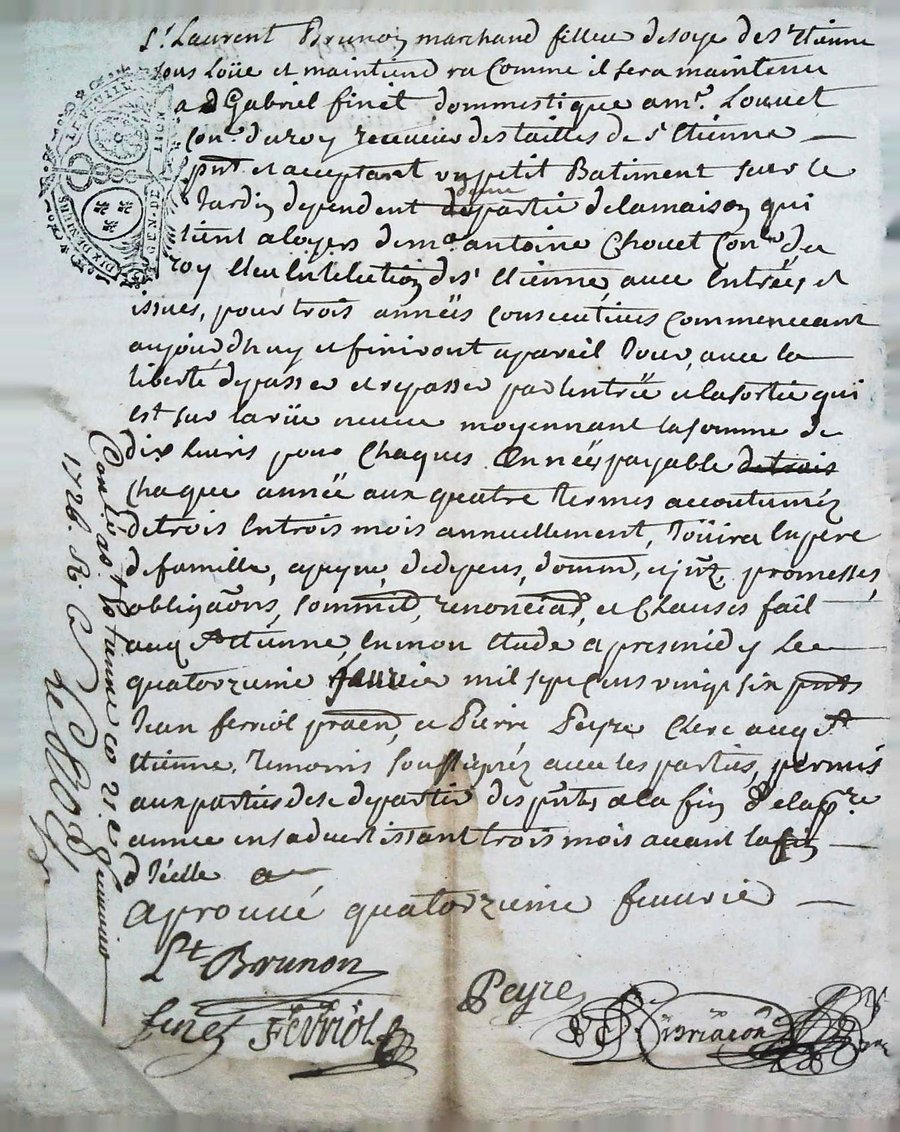 Sr. Laurent Brunon marchand filleur de soye de St Etienne
Lous Loüe et maintiend ra Comme il sera maintenu
a Gabriel finet dommestique a mr. Louuet
Conr. du roy receueur des tailles de St Etienne
pnt. et acceptant un petit Batiment sur le
Jardin dependent de partie de la maison qui
tient a loyers de me. antoine Chouet Conr. du
roy en Lellection de St Etienne, auec Entrées et
issues, pour trois années consecutiues commencant
aujourdhuy et finiront a pareil Jour, auec la
liberté de passer et repasser par lentrée et la sortie qui
est sur la rüe neuue moyennant la somme de
dix liuris pour Chaques Années payable de trois
chaque année aux quatre termes accoutumés
de trois En trois mois annuellement, Joüira En pere
de famille, a peyne, de depens, domm, et jnt, promesses,
obligaôns, soummis, renonciâs, et Clauses fait
audt. St Etienne, En mon Etude apres midy Le
quatorzieme feurier mil sept cens vingt six pnts
Jean ferriol praen, et Pierre Peyre Clerc audt. St
Etienne, Temoins soussignés auec les parties, permis
aux parties de se departir des pnts a la fin de la pre
année en s aduertissant trois mois auant la fin
d Icelle
aprouué quatorzieme feurier
Lt Brunon
finet Ferriol
Peyre
Briacon
Con lé a St Etienne ce 21. e feurier
1726. R.
LIEUE
GEN. DE LION
DIX DENIERS